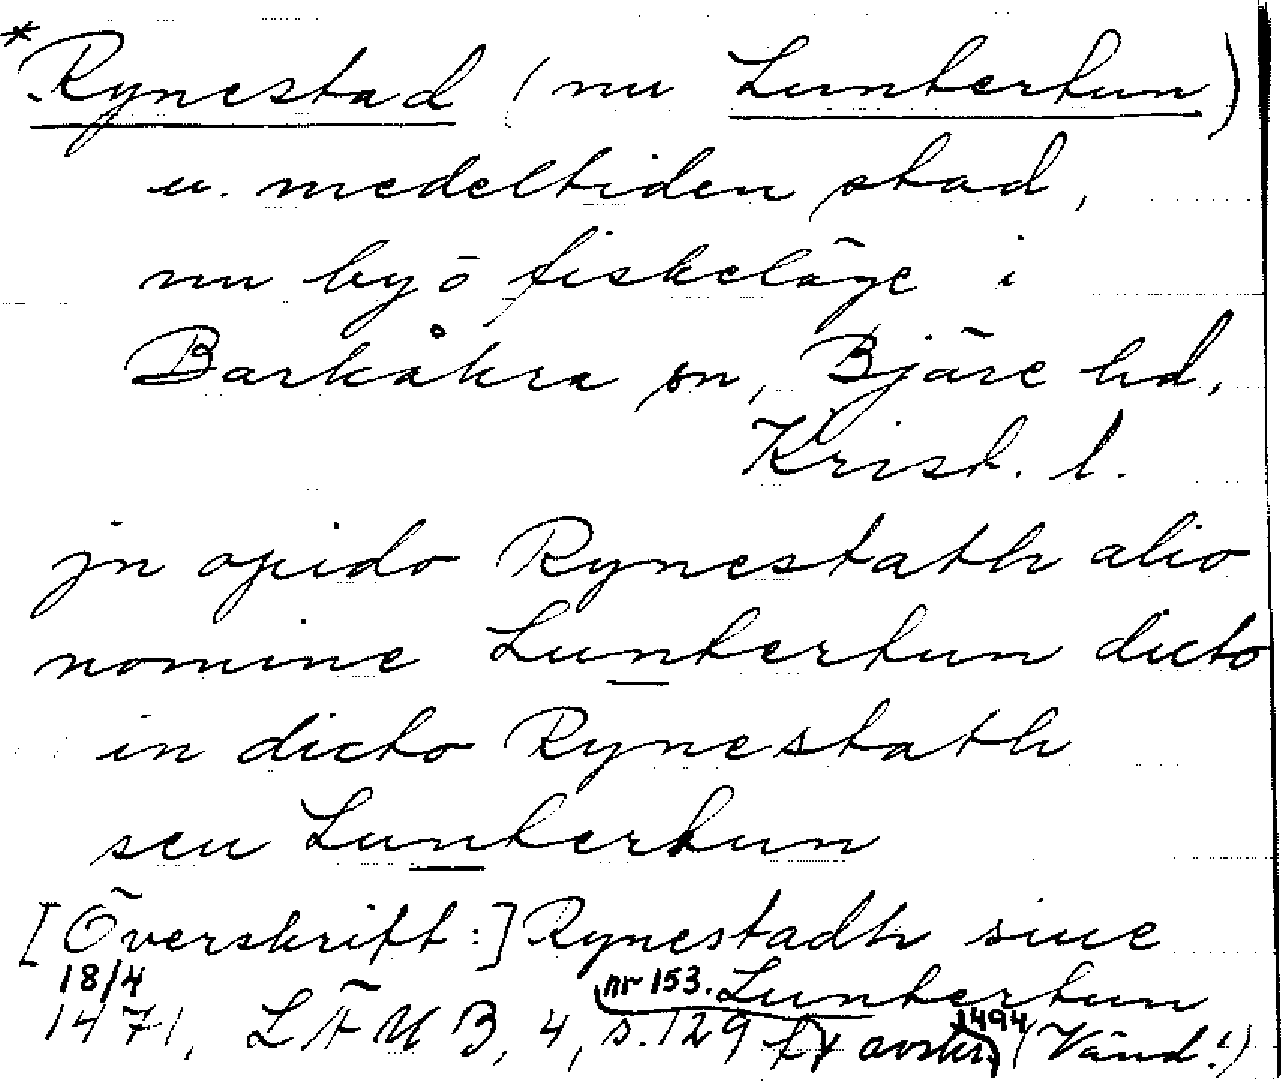 *Rynestad (nu Luntertun)
u. medeltiden stad,
nu by ō fiskeläge i
Barkåkra sn, Bjäre hd,
Krist. l.
jn opido Rynestath alio
nomine Luntertun dicto
in dicto Rynestath
seu Luntertun
[Överskrift:] Rynestadh siue
18/4 nr 153. Luntertun
1471, LÄUB, 4, s. 129 avskr. 1494 (Vänd!)